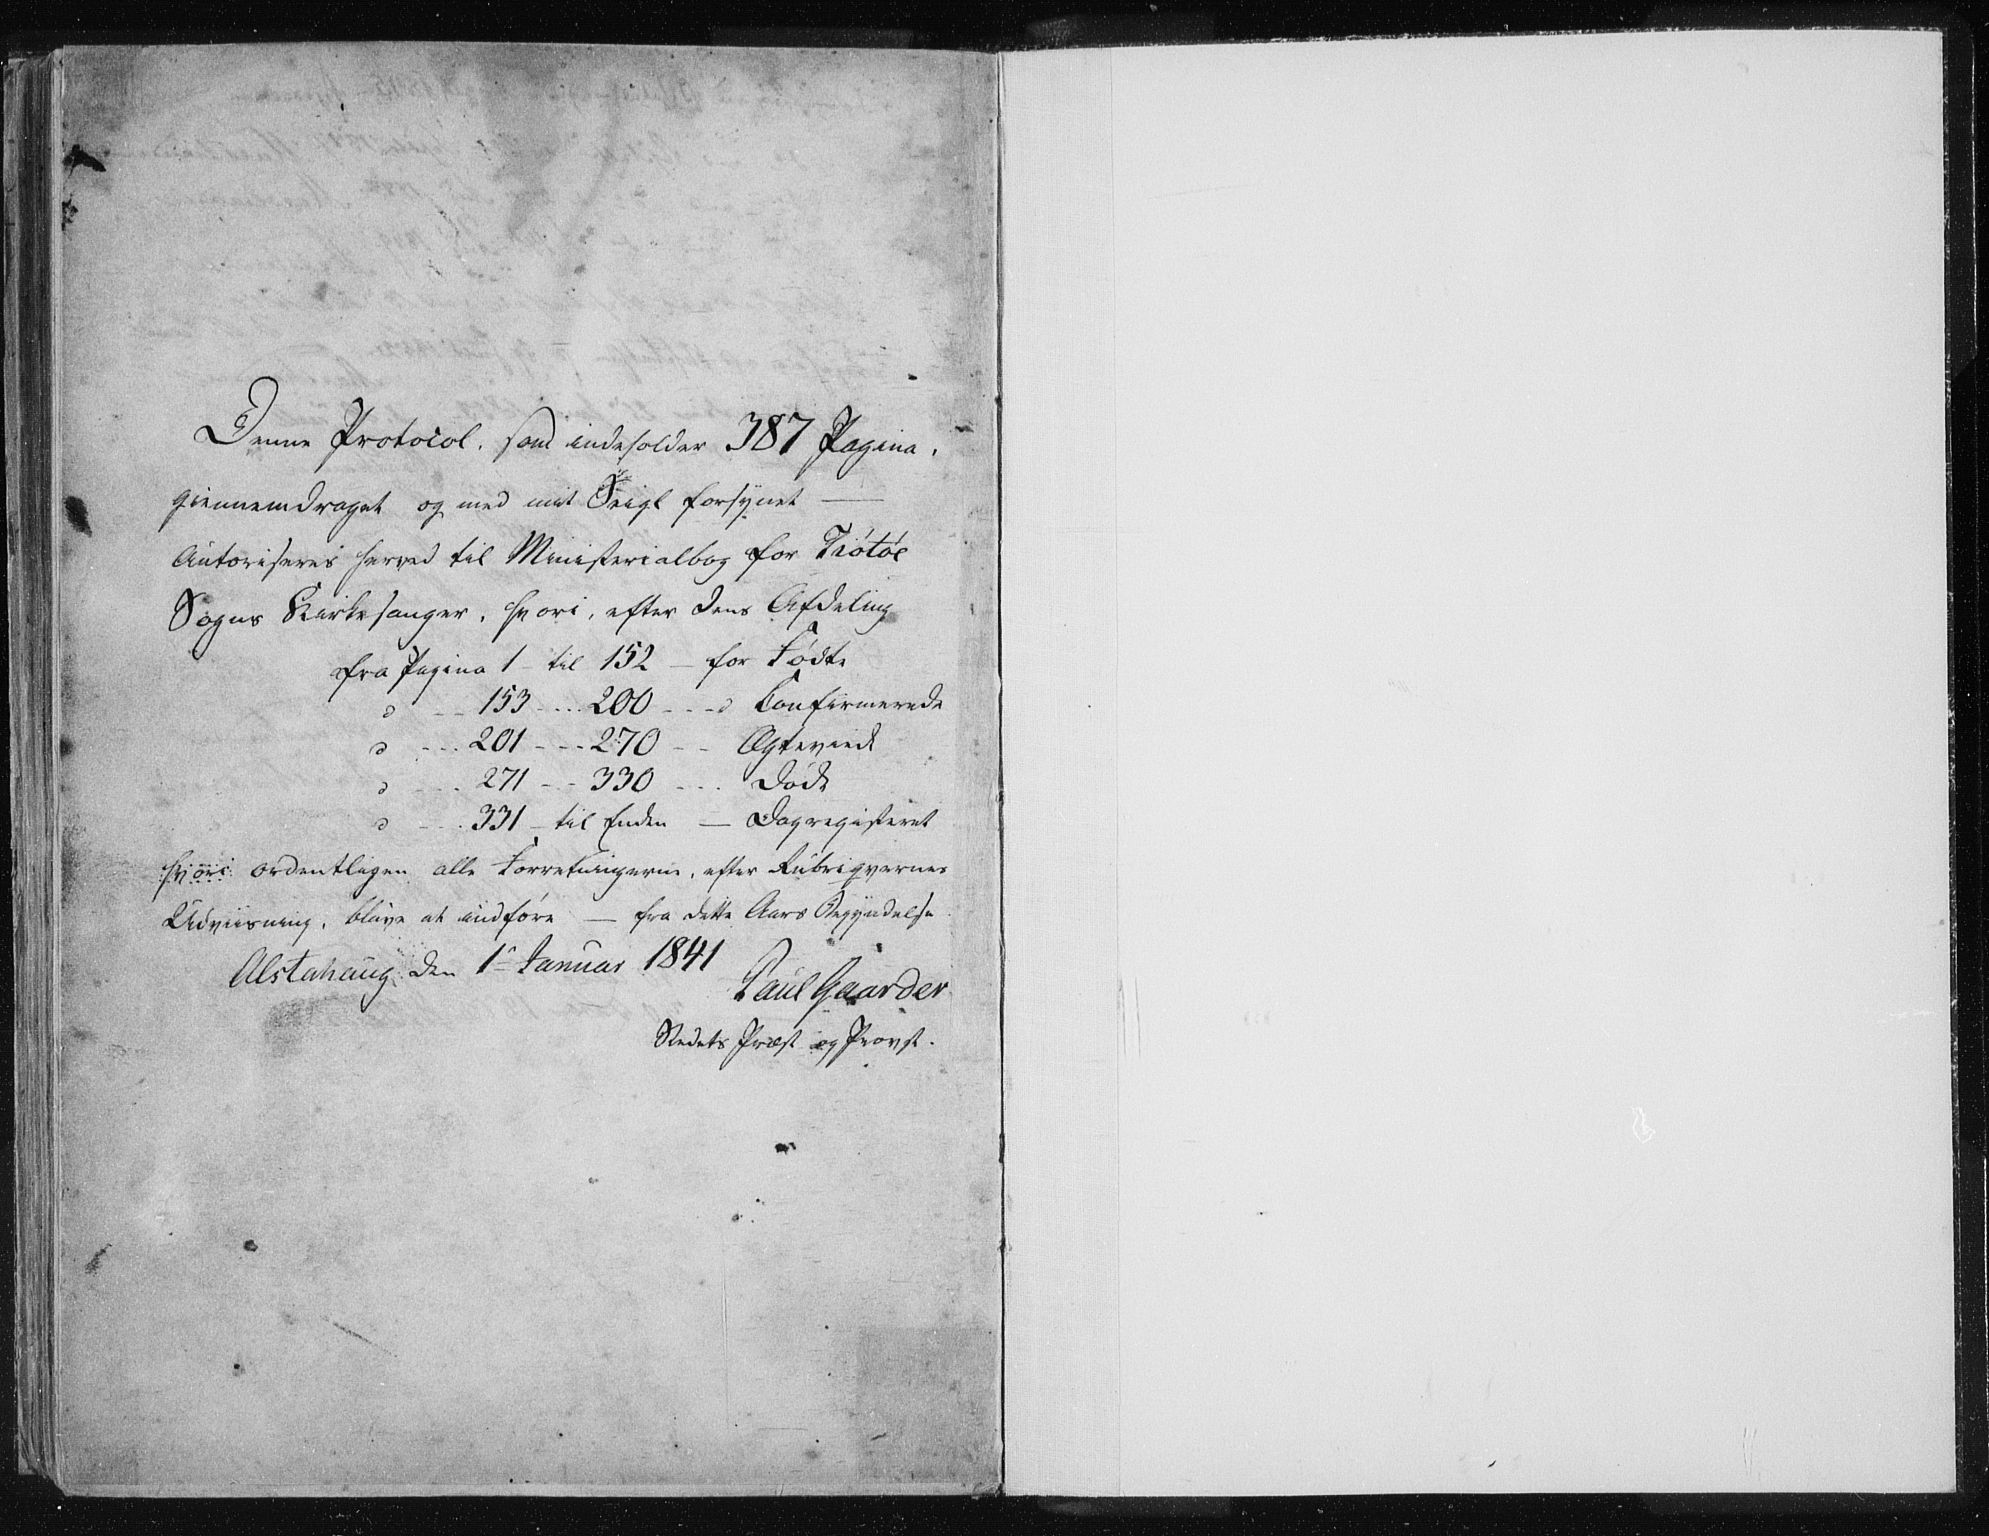 Denne Protocol, som indeholder 387 Pagina,
giennemdraget og med mit Seigl forsÿnet —
Autoriseres herved til Ministerialbog for Tiøtøe
Sogns Kirkesanger, hvori, efter dens Afdeling
fra Pagina 1 - til 152 - for Fødte
d - - 153 - - - 200 - - - d Confirmerede
d - - - 201 - - - 270 - - Ægteviede
d - - - 271 - - - 330 - - - Døde
d - - - 331 - til Enden — Dagregisteret
hvori ordentligen alle Forretningerne, efter Rubriqvernes
Udviisning, blive at indføre — fra dette Aars Begÿndelse
Alstahaug den 1ᵉ Januar 1841
Paul Gaarder
Stedets Præst og Provst.